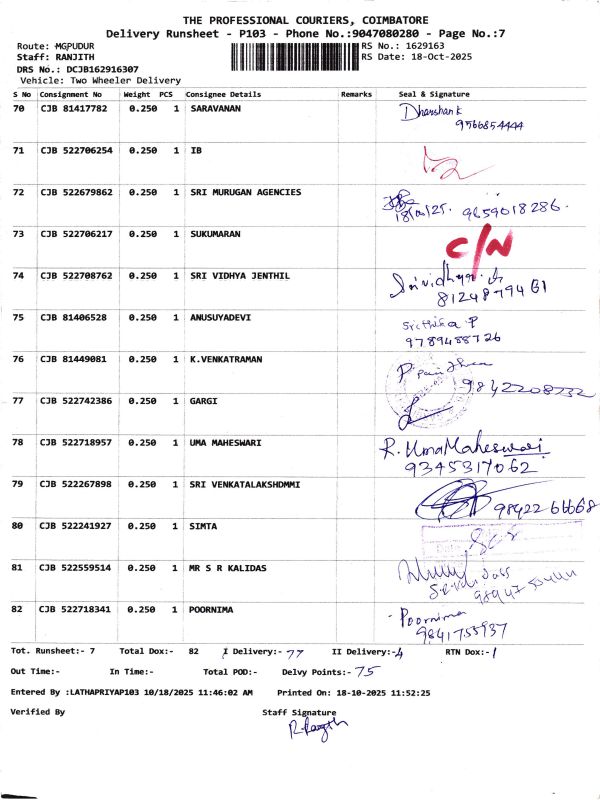 THE PROFESSIONAL COURIERS, COIMBATORE
Delivery Runsheet - P103 - Phone No.:9047080280 - Page No.:7
Route: MGPUDUR RS No.: 1629163
Staff: RANJITH RS Date: 18-Oct-2025
DRS No.: DCJB162916307
Vehicle: Two Wheeler Delivery
S No Consignment No Weight PCS Consignee Details Remarks Seal & Signature
70 CJB 81417782 0.250 1 SARAVANAN Dharshan k
9566854444
71 CJB 522706254 0.250 1 IB
72 CJB 522679862 0.250 1 SRI MURUGAN AGENCIES
9659018286.
73 CJB 522706217 0.250 1 SUKUMARAN C/N
74 CJB 522708762 0.250 1 SRI VIDHYA JENTHIL Srividhya
8124879461
75 CJB 81406528 0.250 1 ANUSUYADEVI Srithika P
9789488726
76 CJB 81449081 0.250 1 K.VENKATRAMAN
9842208732
77 CJB 522742386 0.250 1 GARGI
78 CJB 522718957 0.250 1 UMA MAHESWARI R. UmaMaheswari
9345317062
79 CJB 522267898 0.250 1 SRI VENKATALAKSHDMMI
9842266668
80 CJB 522241927 0.250 1 SIMTA
81 CJB 522559514 0.250 1 MR S R KALIDAS
82 CJB 522718341 0.250 1 POORNIMA Poornima
9841755937
Tot. Runsheet:- 7 Total Dox:- 82 I Delivery:- 77 II Delivery:- 4 RTN Dox:- 1
Out Time:- In Time:- Total POD:- Delvy Points:- 75
Entered By :LATHAPRIYAP103 10/18/2025 11:46:02 AM Printed On: 18-10-2025 11:52:25
Verified By Staff Signature